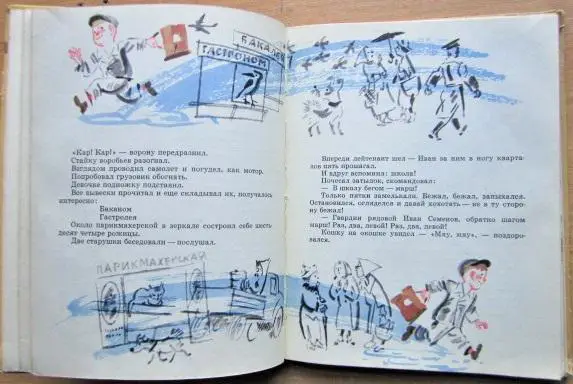 БАКАЛЕЯ
ГАСТРОНОМ
«Кар! Кар!» — ворону передразнил.
Стайку воробьев разогнал.
Взглядом проводил самолет и погудел, как мотор.
Попробовал грузовик обогнать.
Девочке подножку подставил.
Все вывески прочитал и еще складывал их, получалось
интересно:
Баканом
Гастролея
Около парикмахерской в зеркале состроил себе шесть-
десят четыре рожицы.
Две старушки беседовали — послушал.
ПАРИКМАХЕРСКАЯ
Впереди лейтенант шел — Иван за ним в ногу кварта-
лов пять прошагал.
И вдруг вспомнил: школа!
Почесал затылок, скомандовал:
— В школу бегом — марш!
Только пятки замелькали. Бежал, бежал, запыхался.
Остановился, огляделся и давай хохотать — не в ту сторо-
ну бежал!
— Гвардии рядовой Иван Семенов, обратно шагом
марш! Раз, два, левой! Раз, два, левой!
Кошку на окошке увидел — «Мяу, мяу», — поздоро-
вался.